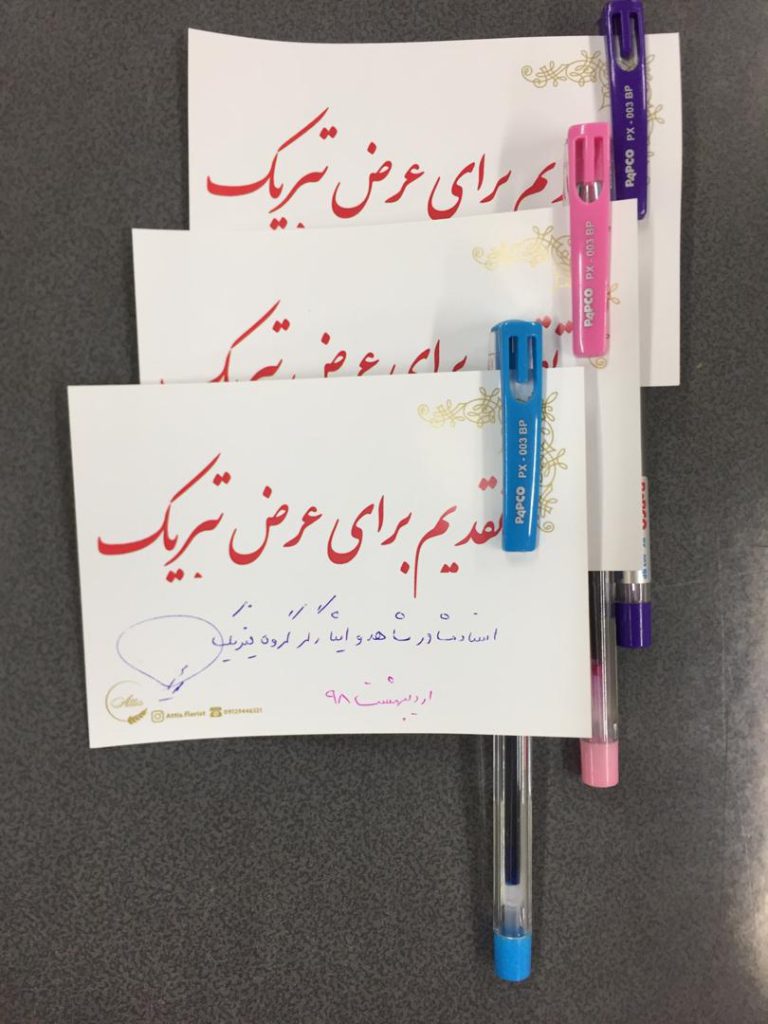 یم برای عرض تبریک
PAPCO PX - 003 BP
برای عرض تبریک
PAPCO PX - 003 BP
تقدیم برای عرض تبریک
PAPCO PX - 003 BP
استاد مشاور شاهد و ایثارگر گروه فیزیک
اردیبهشت ۹۸
Attis
Attis.Florist 09129446321